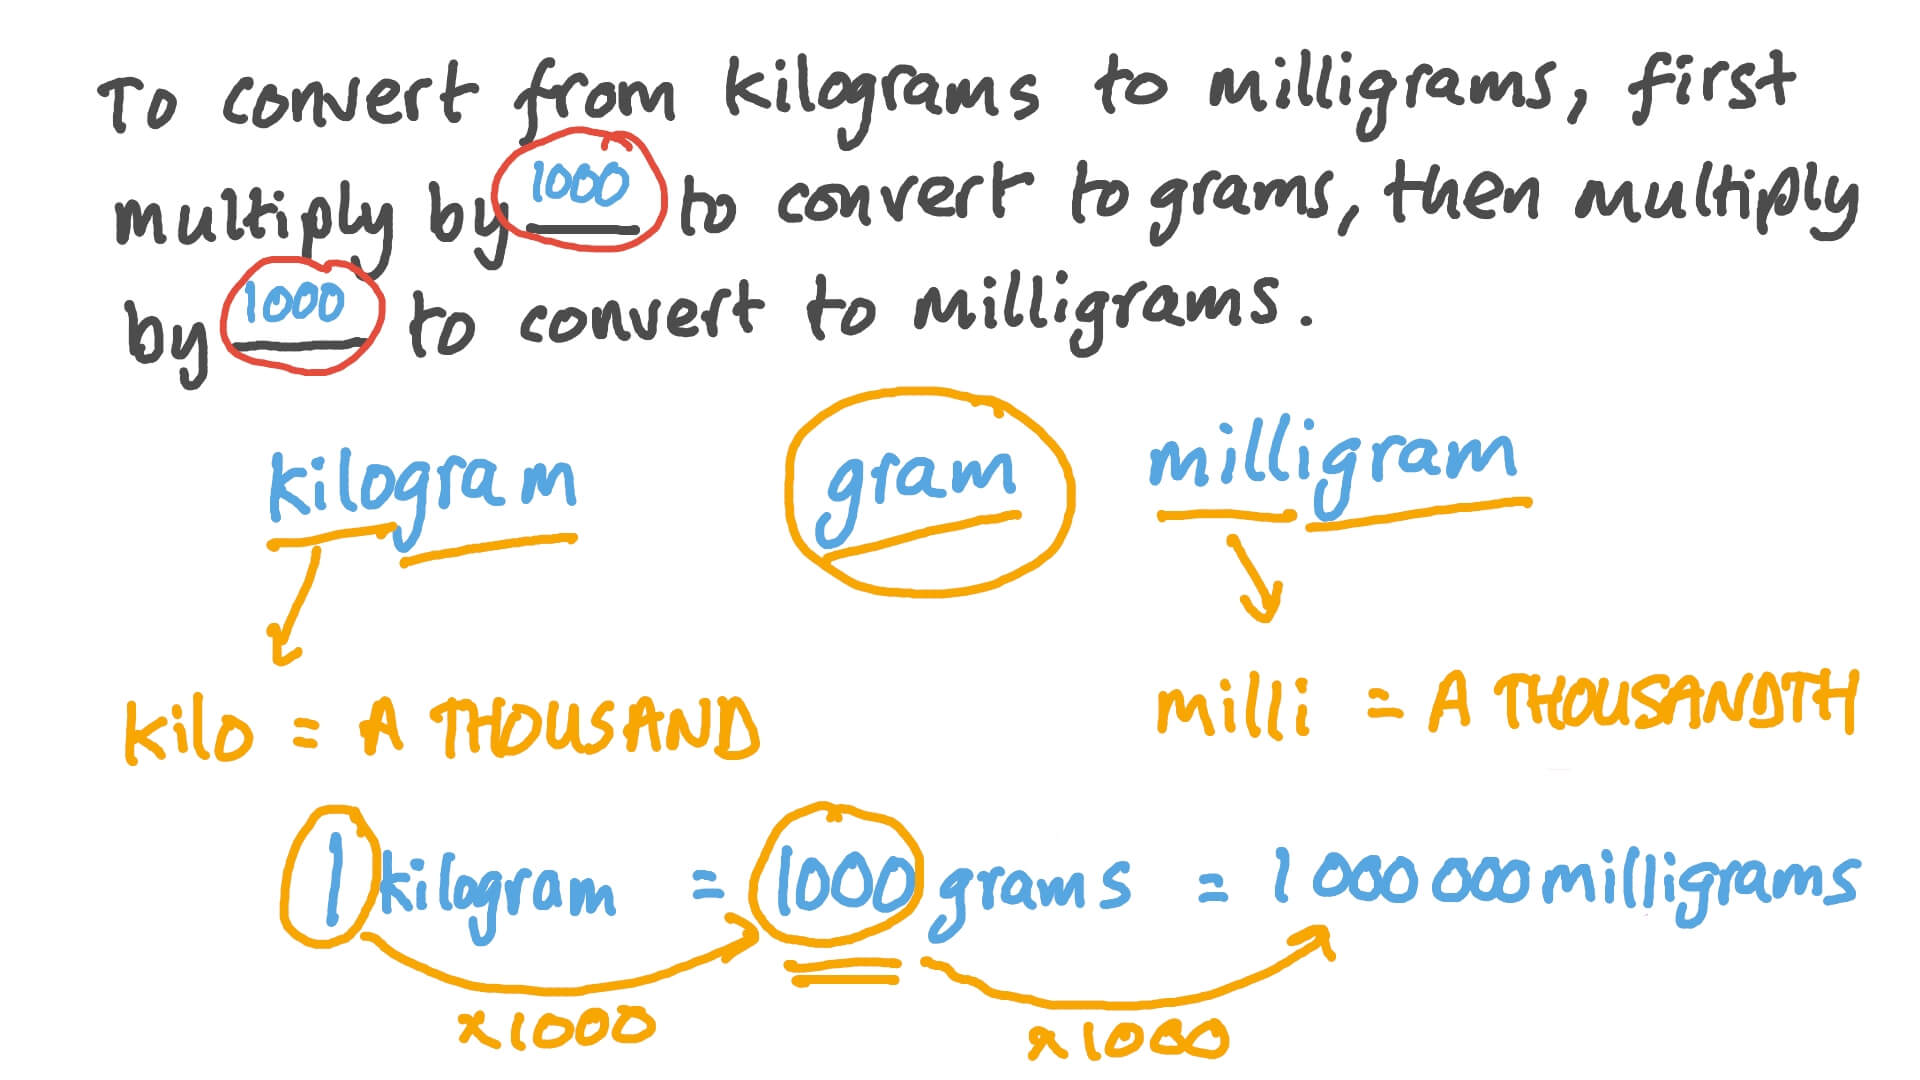 To convert from kilograms to milligrams, first
multiply by 1000 to convert to grams, then multiply
by 1000 to convert to milligrams.
kilogram gram milligram
kilo = A THOUSAND milli = A THOUSANDTH
1 kilogram = 1000 grams = 1 000 000 milligrams
×1000 ×1000